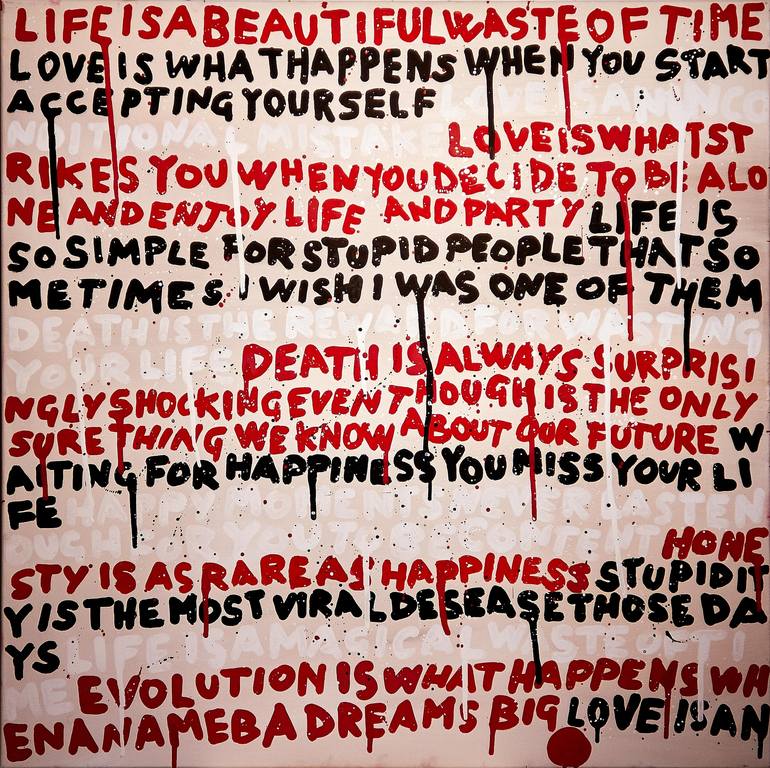 LIFE IS A BEAUTIFUL WASTE OF TIME
LOVE IS WHAT HAPPENS WHEN YOU START
ACCEPTING YOURSELF LOVE IS AN UNCO
NDITIONAL MISTAKE LOVE IS WHAT ST
RIKES YOU WHEN YOU DECIDE TO BE ALO
NE AND ENJOY LIFE AND PARTY LIFE IS
SO SIMPLE FOR STUPID PEOPLE THAT SO
METIMES I WISH I WAS ONE OF THEM
DEATH IS THE REWARD FOR WASTING
YOUR LIFE DEATH IS ALWAYS SURPRISI
NGLY SHOCKING EVEN THOUGH IS THE ONLY
SURE THING WE KNOW ABOUT OUR FUTURE W
AITING FOR HAPPINESS YOU MISS YOUR LI
FE HAPPY MOMENTS NEVER LAST EN
OUGH FOR YOU TO BE CONTENT HONE
STY IS AS RARE AS HAPPINESS STUPIDIT
Y IS THE MOST VIRAL DESEASE THOSE DA
YS LIFE IS A MAGICAL WASTE OF TI
ME EVOLUTION IS WHAT HAPPENS WH
EN ANAMEBA DREAMS BIG LOVE IS AN